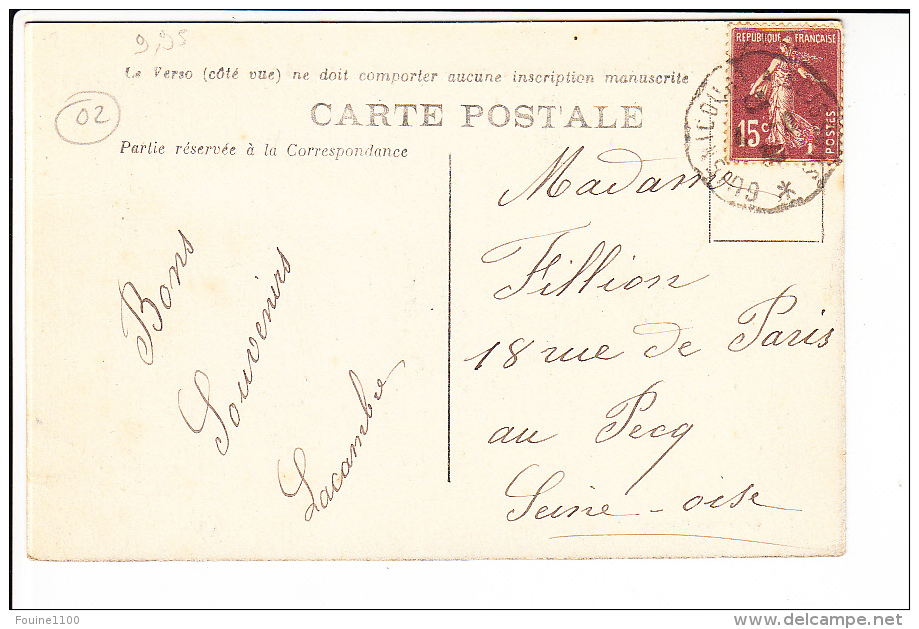 9,95
Le Verso (côté vue) ne doit comporter aucune inscription manuscrite
CARTE POSTALE
02
Partie réservée à la Correspondance
REPUBLIQUE FRANÇAISE
15c
POSTES
Bons
Souvenirs
Lacambre
Madame
Fillion
18 rue de Paris
au Pecq
Seine-oise
Fouine1100
http://www.delcampe.net